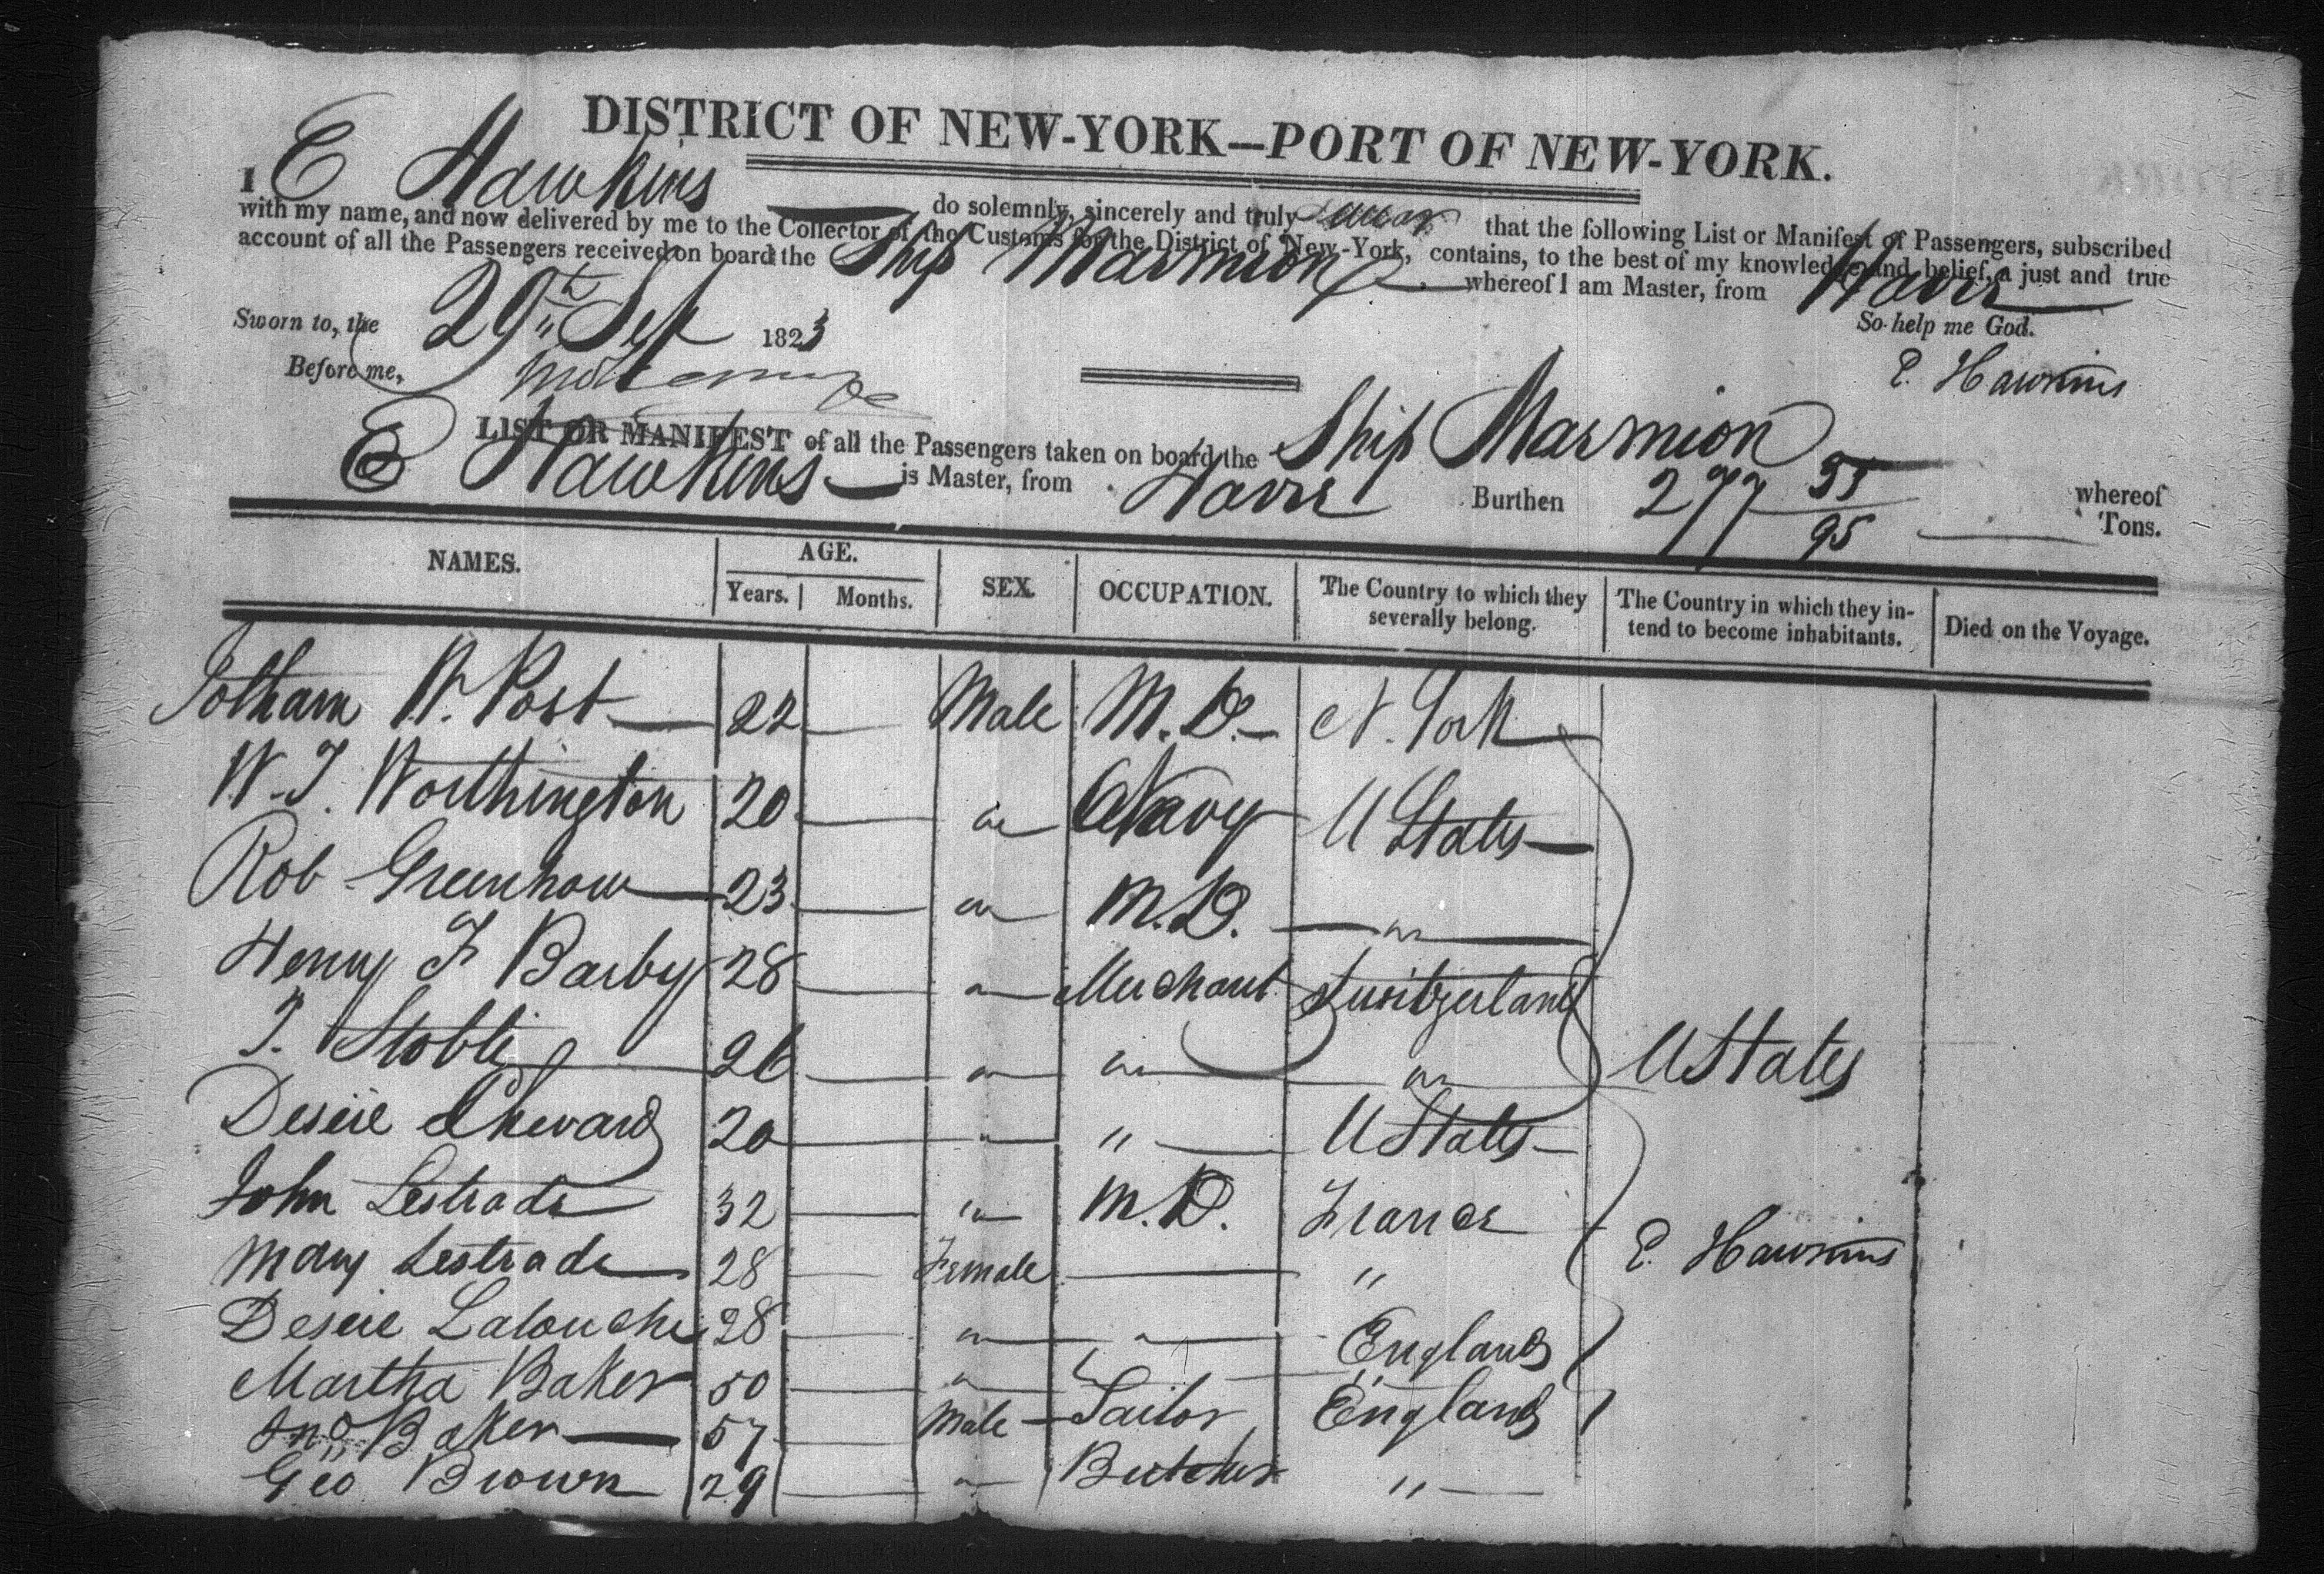 DISTRICT OF NEW-YORK—PORT OF NEW-YORK.
I E Hawkins do solemnly, sincerely and truly swear that the following List or Manifest of Passengers, subscribed
with my name, and now delivered by me to the Collector of the Customs for the District of New-York, contains, to the best of my knowledge and belief, a just and true
account of all the Passengers received on board the Ship Marmion whereof I am Master, from Havre
Sworn to, the 29th Sep 1823 So help me God.
Before me, E. Hawkins
LIST OR MANIFEST of all the Passengers taken on board the Ship Marmion whereof
E Hawkins is Master, from Havre Burthen 277 35/95 Tons.
NAMES. AGE. SEX. OCCUPATION. The Country to which they severally belong. The Country in which they intend to become inhabitants. Died on the Voyage.
Years. Months.
Jotham W. Post 22 Male M.D. N. York
W. T. Worthington 20 " Navy U States
Rob Greenhow 23 " M.D. "
Henry F Barby 28 " Merchant Switzerland
T. Stobli 26 " " " U States
Desire Cheward 20 " " U States
John Lestrade 32 " M.D. France
Mary Lestrade 28 Female " E. Hawkins
Desire Latouche 28 " " England
Martha Baker 50 " "
Jno Baker 57 Male Sailor England
Geo Brown 29 " Butcher "